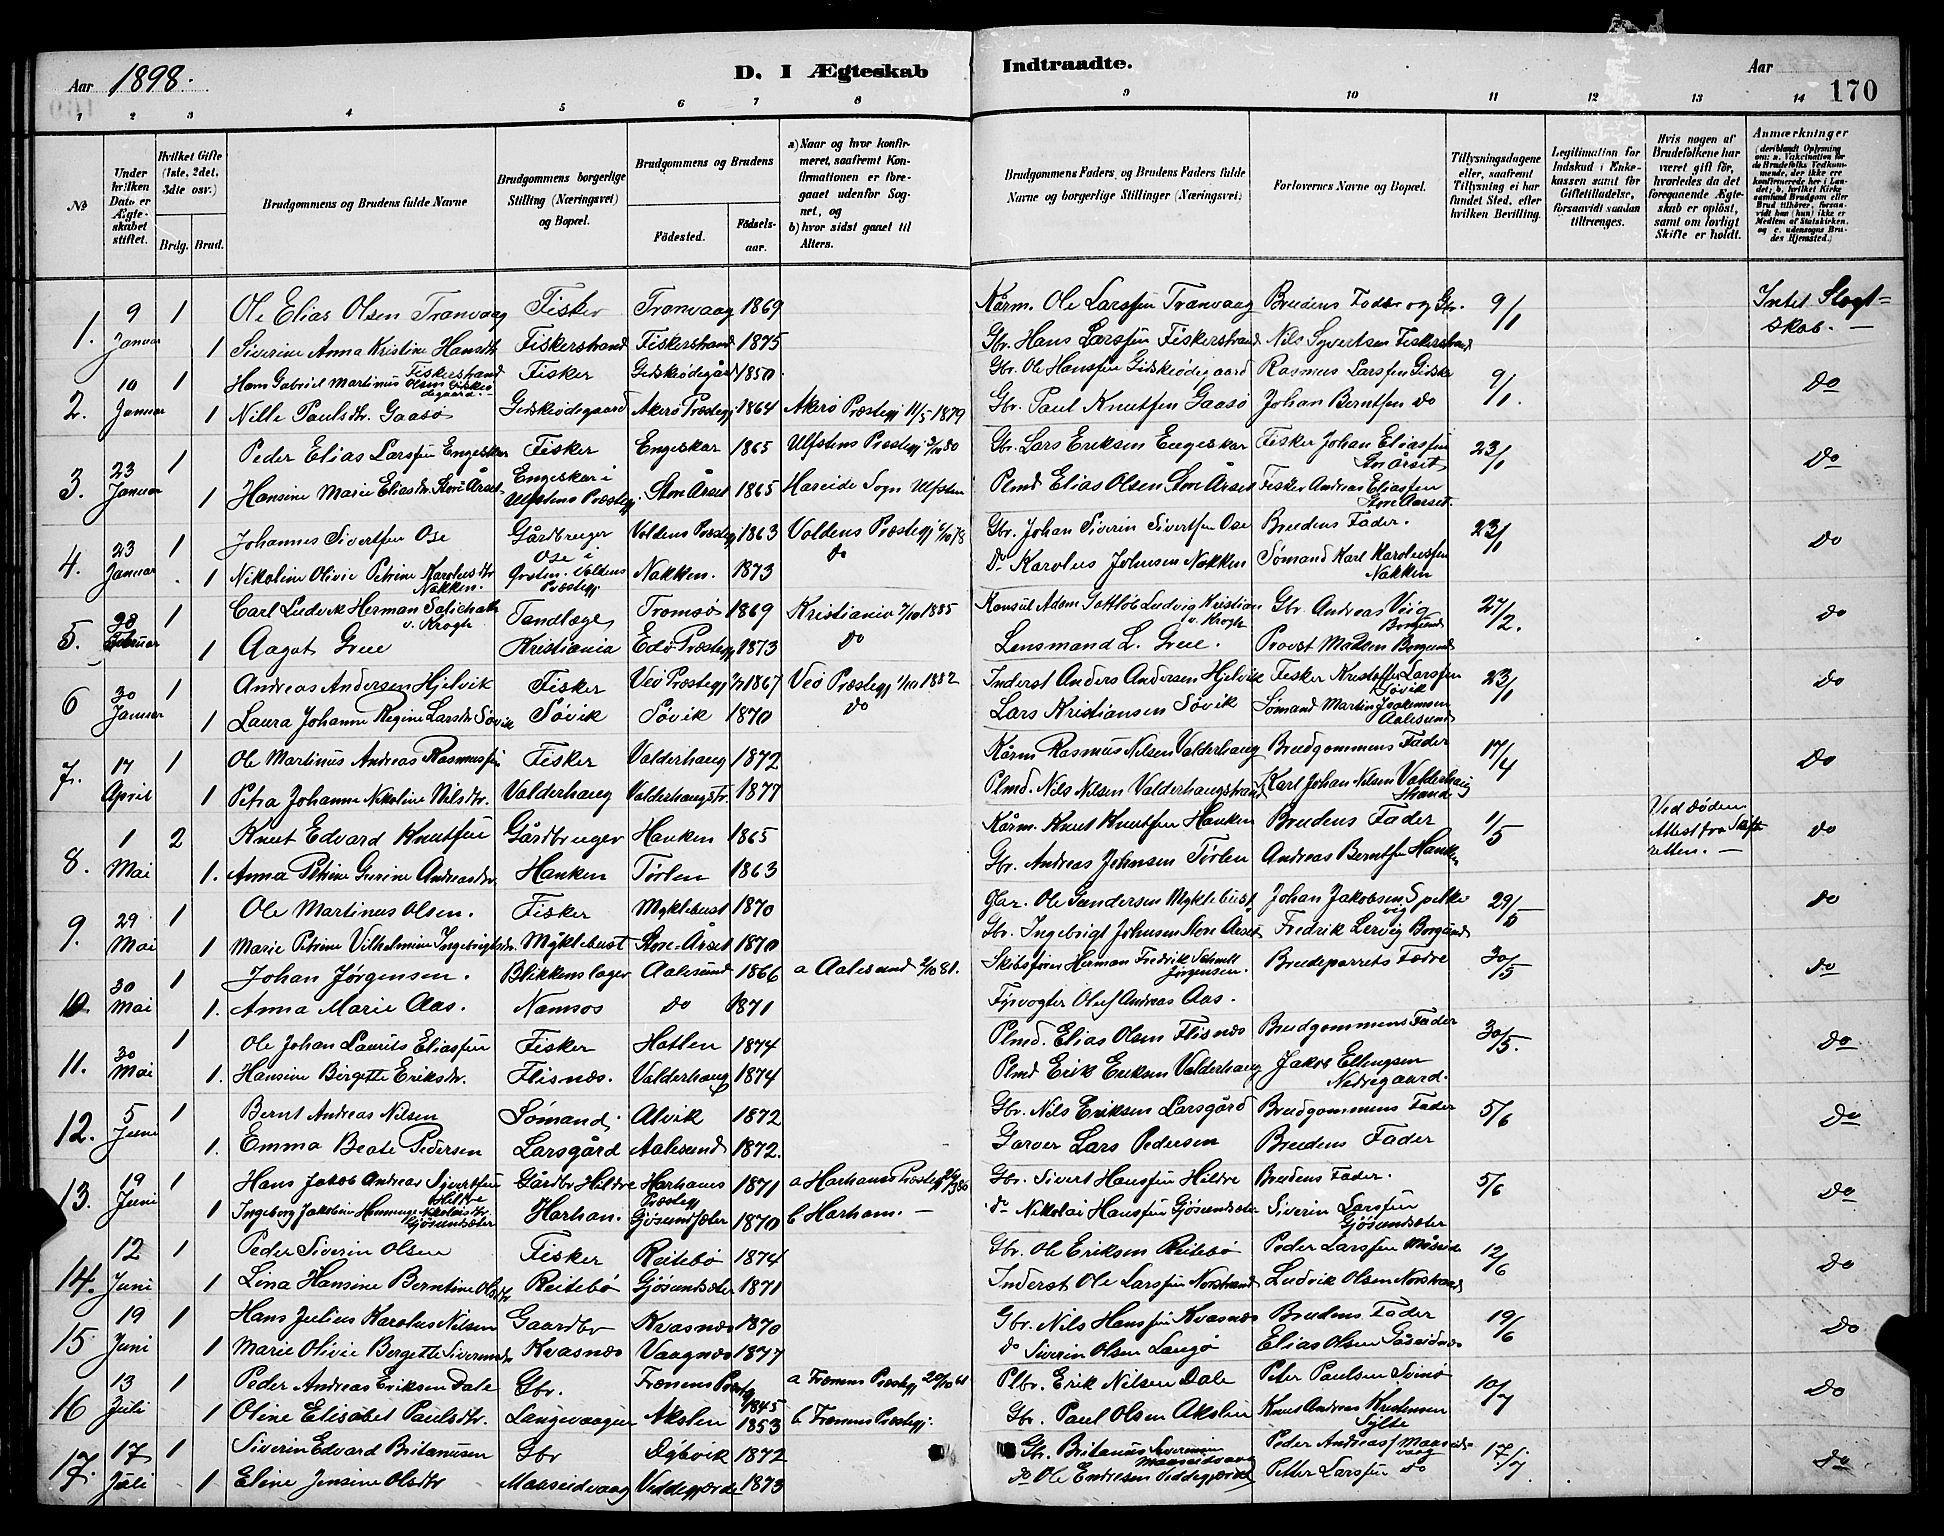 Aar 1898. D. I Ægteskab Indtraadte. Aar 170
1 2 3 4 5 6 7 8 9 10 11 12 13 14
№
Under hvilken Dato er Ægteskabet stiftet.
Hvilket Gifte (1ste, 2det, 3die osv.)
Brdg. Brud.
Brudgommens og Brudens fulde Navne
Brudgommens borgerlige Stilling (Næringsvei) og Bopæl.
Brudgommens og Brudens
Fødested.
Fødselsaar.
a) Naar og hvor konfirmeret, saafremt Konfirmationen er foregaaet udenfor Sognet, og
b) hvor sidst gaaet til Alters.
Brudgommens Faders og Brudens Faders fulde Navne og borgerlige Stillinger (Næringsvei)
Forlovernes Navne og Bopæl.
Tillysningsdagene eller, saafremt Tillysning ei har fundet Sted, efter hvilken Bevilling.
Legitimation for Indskud i Enkekassen samt for Giftetilladelse, forsaavidt saadan tiltrænges.
Hvis nogen af Brudefolkene har været gift før, hvorledes da det foregaaende Ægteskab er opløst, samt om lovligt Skifte er holdt.
Anmærkninger (deriblandt Oplysning om: a. Vakcination for de Brudefolks Vedkommende, der ikke ere konfirmerede her i Landet; b. hvilket Kirkesamfund Brudgom eller Brud tilhører, forsaavidt han (hun) ikke er Medlem af Statskirken, og c. udensogns Brudes Hjemsted.)
1. 9 Januar 1 Ole Elias Olsen Tranvaag Fisker Tranvaag 1869 Kårm. Ole Larssen Tranvaag Brudens Fader og Gbr. 9/1 Intet Slægtskab.
1 Siverine Anna Kristine Hansdtr Fiskerstrand Fiskerstrand Fiskerstrand 1875 Gbr. Hans Larssen Fiskerstrand Nils Syvertsen Fiskerstrand
2. 10 Januar 1 Hans Gabriel Martinus Olsen Gidskeødegaard Fisker Gidskeødegård 1850 Gbr. Ole Hanssen Gidskeødegaard Rasmus Larssen Gidske 9/1. Do
1 Nille Paulsdtr. Gaasø Gidskeødegaard Akerø Præstegj 1864 Akerø Præstegj 11/5 1879 Gbr. Paul Knutsen Gaasø Johan Berntsen do
3. 23 Januar 1 Peder Elias Larssen Engeskar Fisker Engeskar 1865 Ulfstens Præstegj 3/10 80 Gbr. Lars Eriksen Engeskar Fisker Johan Eliassen Store Årset 23/1 Do
1 Hansine Marie Eliasdtr. Store Årset Engeskar i Ulfstens Præstegj Store Årset 1865 Hareide Sogn Ulfsten Plmd Elias Olsen Store Årset Fisker Andreas Eliassen Store Aarset
4. 23 Januar 1 Johannes Sivertsen Ose Gårdbruger Voldens Præstegj 1863 Voldens Præstegj 6/10 78 Gbr. Johan Siverin Sivertsen Ose Brudens Fader. 23/1 Do
1 Nikoline Olivie Petrine Karolusdtr Nakken. Ose i Ørsten. Voldens Præstegj Nakken. 1873 do Do Karolus Johnsen Nakken Sømand Karl Karolussen Nakken
5. 28 Februar 1 Carl Ludvik Herman v. Krogh Tandlæge Tromsø 1869 Kristiania 4/10 1885 Konsul Adam Gottlob Ludvig Kristian v. Krogh Gbr. Andreas Veig Borgund 27/2. Do
1 Aagot Grue Kristiania Edø Præstegj 1873 do Lensmand L. Grue. Provst Madsen Borgund
6 30 Januar 1 Andreas Andersen Hjelvik Fisker Veø Præstegj 1867 Veø Præstegj 1/10 1882 Inderst Anders Andersen Hjelvik Fisker Kristoffer Larssen Søvik 23/1 Do
1 Laura Johanne Regine Larsdtr Søvik Søvik Søvik 1870 do Lars Kristiansen Søvik Sømand Martin Joakimsen Aalesund
7. 17 April 1 Ole Martinus Andreas Rasmussen Fisker Valderhaug 1872 Kårm Rasmus Nilsen Valderhaug Brudgommens Fader 17/4 Do
1 Petra Johanne Nikoline Nilsdtr. Valderhaug Valderhaugstr. 1877 Plmd. Nils Nilsen Valderhaugstrand Karl Johan Nilsen Valderhaugstrand
8. 1 Mai 2 Knut Edvard Knutsen Gårdbruger Hanken 1865 Kårm. Knut Knutsen Hanken Brudens Fader 1/5 Ved Døden Attest fra Skifteretten. Do
1. Anna Petrine Gurine Andreasdtr. Hanken Tørlen 1863 Gbr. Andreas Johnsen Tørlen Andreas Berntsen Hanken
9. 29 Mai 1 Ole Martinus Olsen. Fisker Myklebust 1870 Gbr. Ole Gundersen Myklebust Johan Jakobsen Spelkevig 29/5 Do
1 Marie Petrine Vilhelmine Ingebrigtsdtr. Myklebust Store-Årset 1870 Gbr. Ingebrigt Johnsen Store Årset Fredrik Lervig Borgund
10. 30 Mai 1 Johan Jørgensen. Blikkenslager Aalesund 1866 a Aalesund 2/10 81. Skibsfører Herman Fredrik Schmidt Jørgensen. Brudeparrets Fædre 30/5 Do
1. Anna Marie Aas. Namsos Do 1871 Fyrvogter Oluf Andreas Aas.
11. 30 Mai 1 Ole Johan Laurits Eliassen Fisker Hatlen 1874 Plmd. Elias Olsen Flisnæs Brudgommens Fader 30/5. Do
1. Hansine Birgette Eriksdtr. Flisnæs. Valderhaug 1874 Plmd Erik Eriksen Valderhaug Jakob Ellingsen Nedregaard.
12. 5 Juni 1 Bernt Andreas Nilsen Sømand. Alvik 1872 Gbr. Nils Eriksen Larsgård Brudgommens Fader 5/6 Do
1. Emma Beate Pedersen Larsgård Aalesund 1872. Garver Lars Pedersen Brudens Fader
13. 19 Juni 1 Hans Jakob Andreas Sivertsen Hildre Gårdbr Hildre Harhams Præstegj 1871 a Harhams Præstegj Gbr. Sivert Hanssen Hildre Brudens Fader. 5/6 Do
1 Ingeborg Jakobine Nikolaisdtr. Gjøsundsæter Harham. Gjøsundsæter 1870 b Harham. — do Nikolai Hanssen Gjøsundsæter Siverin Larssen Gjøsundsæter
14. 12 Juni 1 Peder Siverin Olsen Fisker Reitebø 1874 Gbr. Ole Eriksen Reitebø Peder Larssen Måseide 12/6 Do
1 Lina Hansine Berntine Olsdtr Reitebø Gjøsundsæter 1871 Inderst Ole Larssen Norstrand Ludvik Olsen Norstrand
15 19 Juni 1 Hans Julius Karolus Nilsen Gaardbr Kvasnæs 1870 Gbr. Nils Hanssen Kvasnæs Brudens Fader 19/6 Do
1 Marie Olivie Bergette Siverinsdtr Kvasnæs Vaagnæs 1877 do Siverin Olsen Langø Elias Olsen Gåseidnæs
16 13 Juli 1 Peder Andreas Eriksen Dale Gbr. Frænens Præstegj 1845 a Frænens Præstegj 20/10 61 Plbr. Erik Nilsen Dale Peter Paulsen Svinø 10/7 Do
1 Oline Elisabet Paulsdtr. Langevaagen Akslen 1853 b Frænens Præstegj. Gbr. Paul Olsen Akslen Knut Andreas Kristensen Sylte
17. 17 Juli 1 Siverin Edvard Britanusen Gbr Dybvik 1872 Gbr. Britanus Siverinsen Maaseidvaag Peder Andreas Maaseidvaag 17/7. Do
1 Eline Jensine Olsdtr Maaseidvaag Veddegjærde 1873 do Ole Endresen Veddegjærdet Petter Larssen do